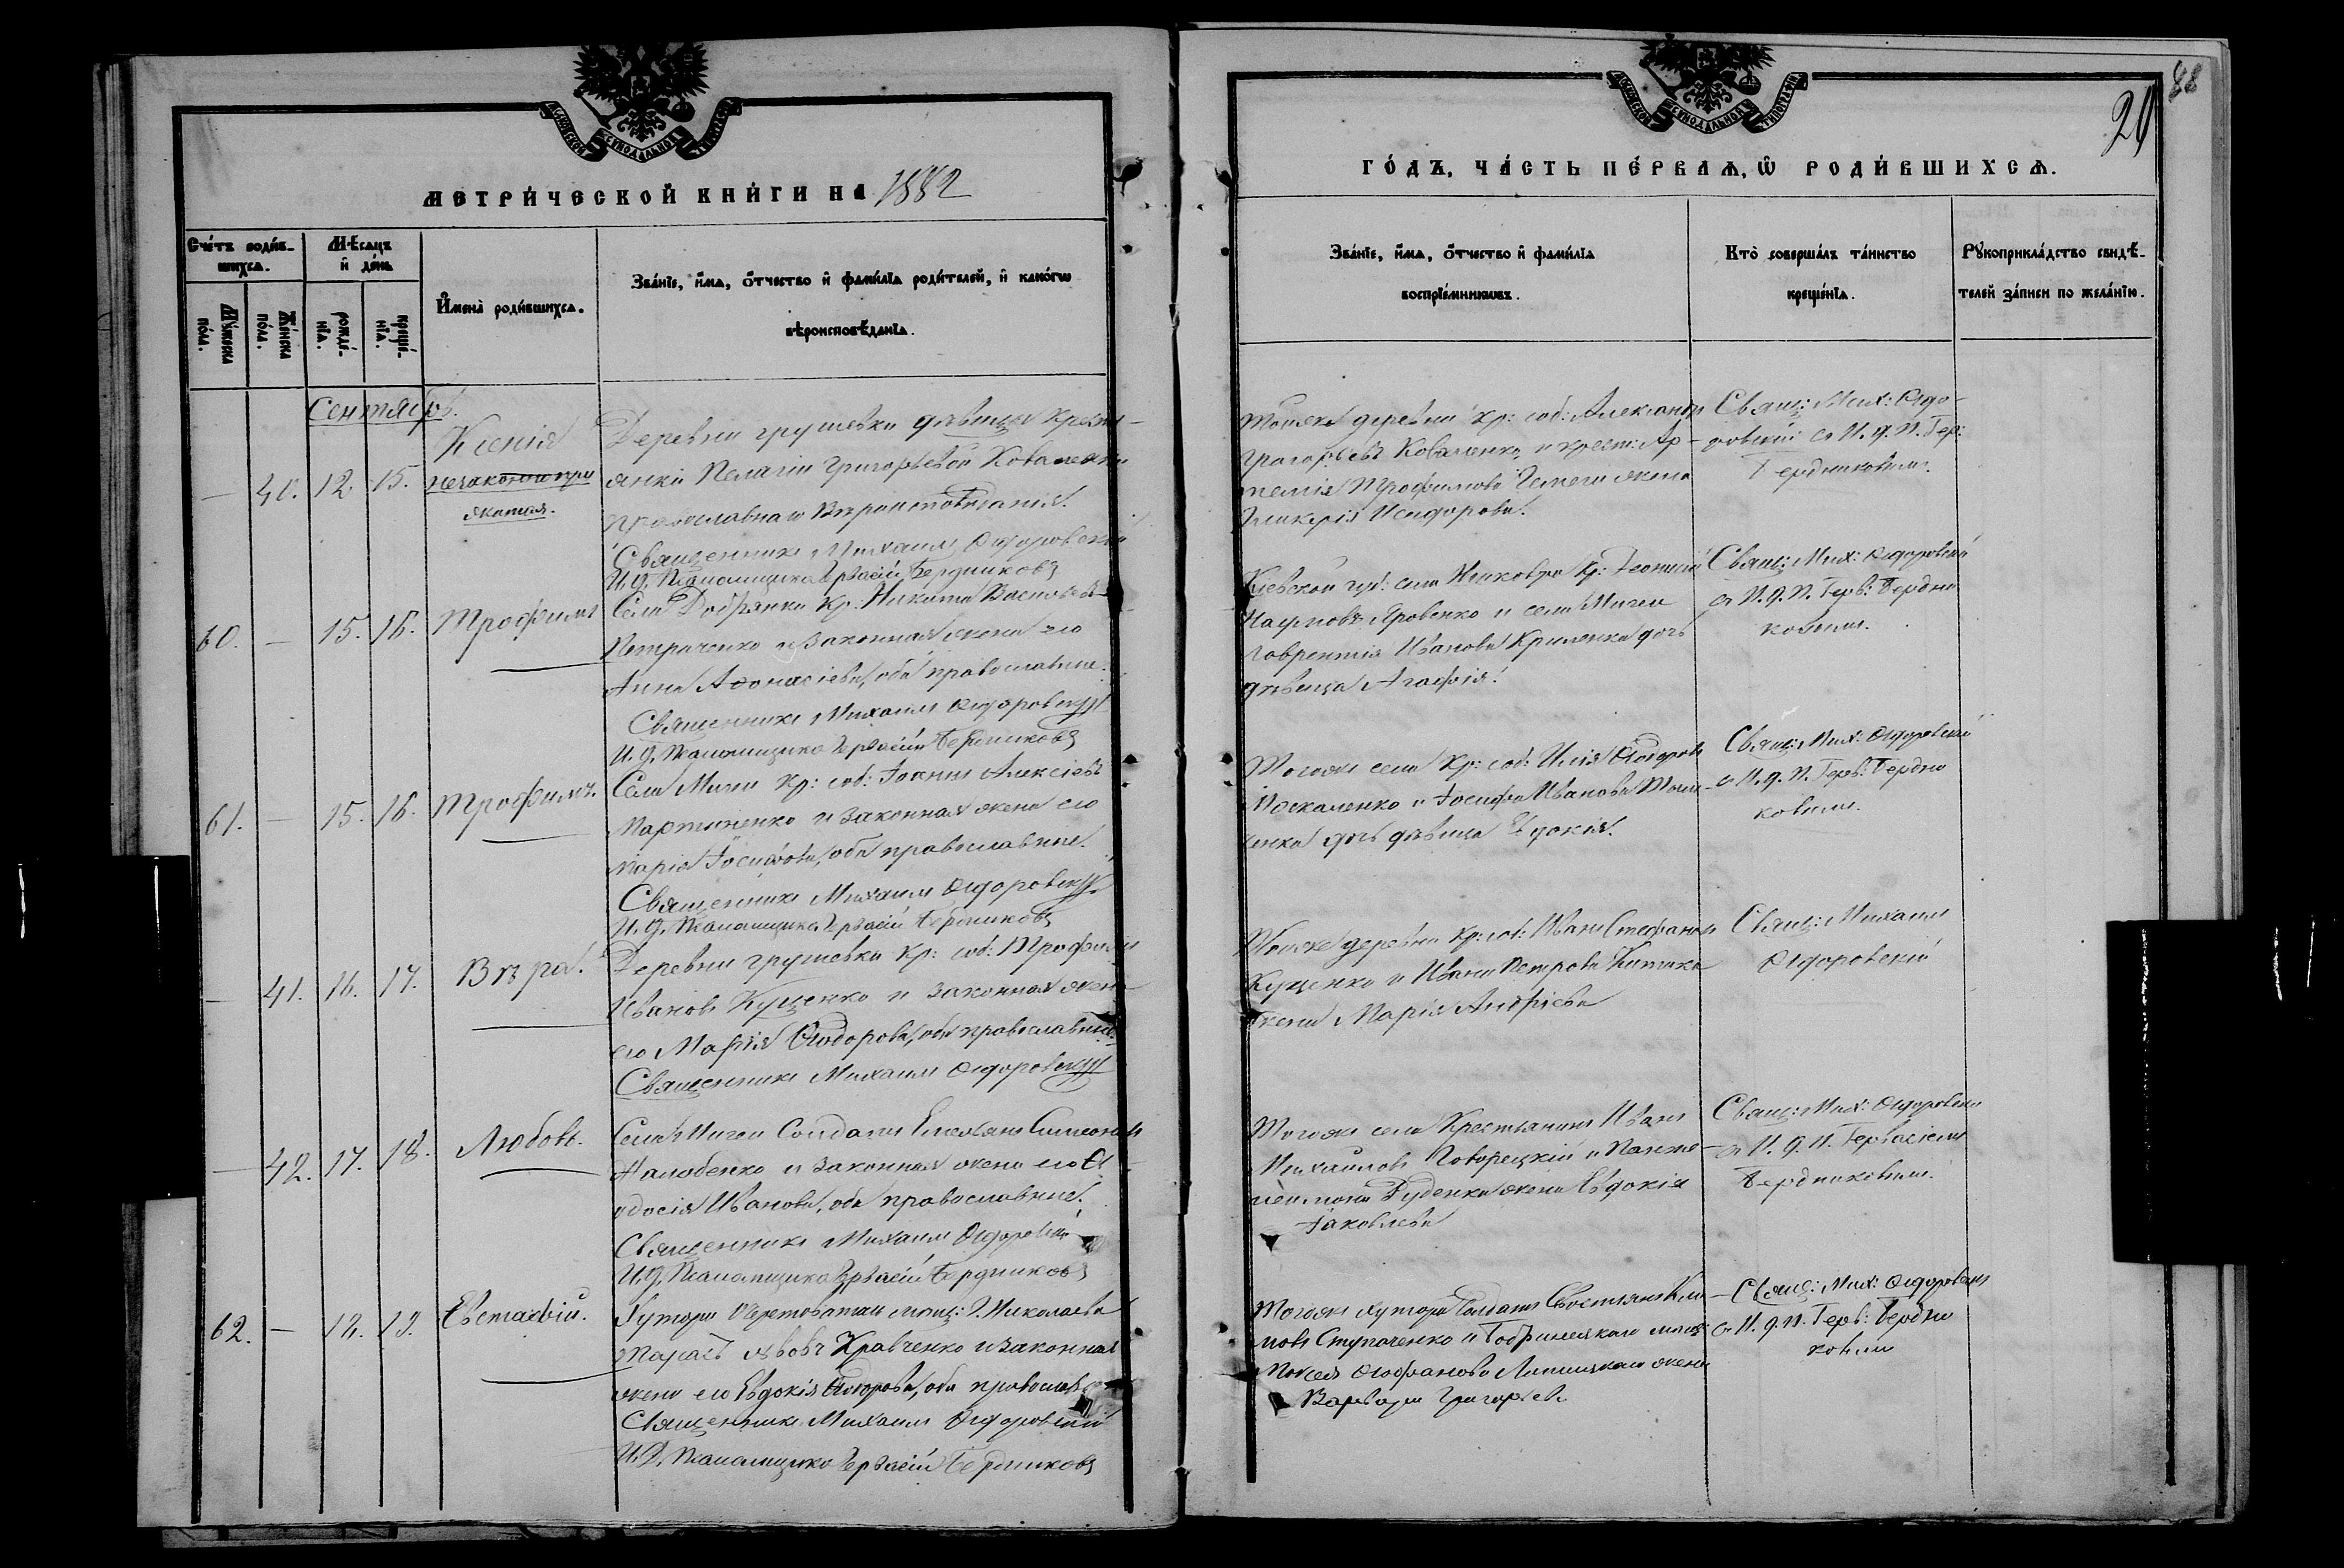 88
20
МОСКОВСКОЙ СѴНОДАЛЬНОЙ ТИПОГРАФІИ
МЕТРИ́ЧЕСКОЙ КНИ́ГИ НА 1882
ГО́ДЪ, ЧА́СТЬ ПЕ́РВАЯ, Ѡ РОДИ́ВШИХСЯ.
Сче́тъ роди́в-
шихся.
Мѣ́сяцъ
и де́нь
Му́жеска
по́ла.
Же́нска
по́ла.
рожде́-
нїа.
креще́-
нїа.
Имена̀ роди́вшихся.
Зва́нїе, и́мя, о́тчество и фами́лїа роди́телей, и како́гѡ
вѣроисповѣ́данїа.
Зва́нїе, и́мя, о́тчество и фами́лїа
воспрїе́мниковъ.
Кто̀ соверша́лъ та́инство
креще́нїа.
Рукоприкла́дство свидѣ́-
телей за́писи по жела́нїю.
Сентябрь.
— 40. 12. 15.
Ксенія
незаконнопри
житая.
Деревни Грушевки дѣвица крестъ-
янки Пелагіи Григорьевой Коваленко
православнаго Вѣроисповѣданія.
Священникъ Михаилъ Ѳедоровскій
И. д. Псаломщика Гервасій Бердниковъ
Тойже деревни кр: соб: Александръ
Григорьевъ Коваленко и крест: Ар-
темія Трофимова жена
Гликерія Исидорова.
Свящ: Мих: Ѳедо-
ровскій съ И. д. П. Гер:
Бердниковымъ.
60. — 15. 16. Трофимъ
Села Добрянки Кр: Никита Васильевъ
Петраченко и законная жена его
Анна Аѳонасіева, оба православные.
Священникъ Михаилъ Ѳедоровскій
И. д. Псаломщика Гервасій Бердниковъ
Кіевской губ: села Кр: Леонтій
Наумовъ Яровенко и села Мигеи
Лаврентія Иванова дочь
дѣвица Агафія.
Свящ: Мих: Ѳедоровскій
съ И. д. П. Герв: Бердни
ковымъ.
61. — 15. 16. Трофимъ.
Села Мигеи Кр: соб: Іоаннъ Алексіевъ
Мартиненко и законная жена его
Марія Іосифова, оба православные.
Священникъ Михаилъ Ѳедоровскій
И. д. Псаломщика Гервасій Бердниковъ
Тогоже села Кр: соб: Илія Ѳеодоровъ
Москаленко и Іосифа Иванова
дочь дѣвица Евдокія.
Свящ: Мих: Ѳедоровскій
съ И. д. П. Герв: Бердни
ковымъ.
— 41. 16. 17. Вѣра.
Деревни Грушевки Кр: соб: Трофимъ
Ивановъ Куценко и законная жена
его Марія Ѳеодорова, оба православные.
Священникъ Михаилъ Ѳедоровскій
Тойже деревни Кр: соб: Иванъ Стефановъ
Куценко и Ивана Петрова
жена Марія Андріева
Свящ: Михаилъ
Ѳедоровскій
— 42. 17. 18. Любовь.
Села Мигеи Солдатъ Емельянъ Симеоновъ
и законная жена его Ѳе
одосія Иванова, оба православные.
Священникъ Михаилъ Ѳедоровскій
И. д. Псаломщика Гервасій Бердниковъ
Тогоже села Крестьянинъ Иванъ
Михайловъ Говорецкій и Панте-
леимона Руденка жена Евдокія
Іаковлева
Свящ: Мих: Ѳедоровскій
съ И. д. П. Гервасіемъ
Бердниковымъ.
62. — 18. 19. Евстафій.
Хутора мѣщ: г. Николаева
Тарасъ Львовъ Кравченко и законная
жена его Евдокія Ѳеодорова, оба православ
Священникъ Михаилъ Ѳедоровскій
И. Д. Псаломщика Гервасій Бердниковъ
Тогоже хутора Солдатъ Севостьянъ Кли-
мовъ Ступаченко и мѣщ:
Моисея Ѳеофанова жена
Варвара Григорьева
Свящ: Мих: Ѳедоровскій
съ И. д. П. Герв: Бердни
ковымъ